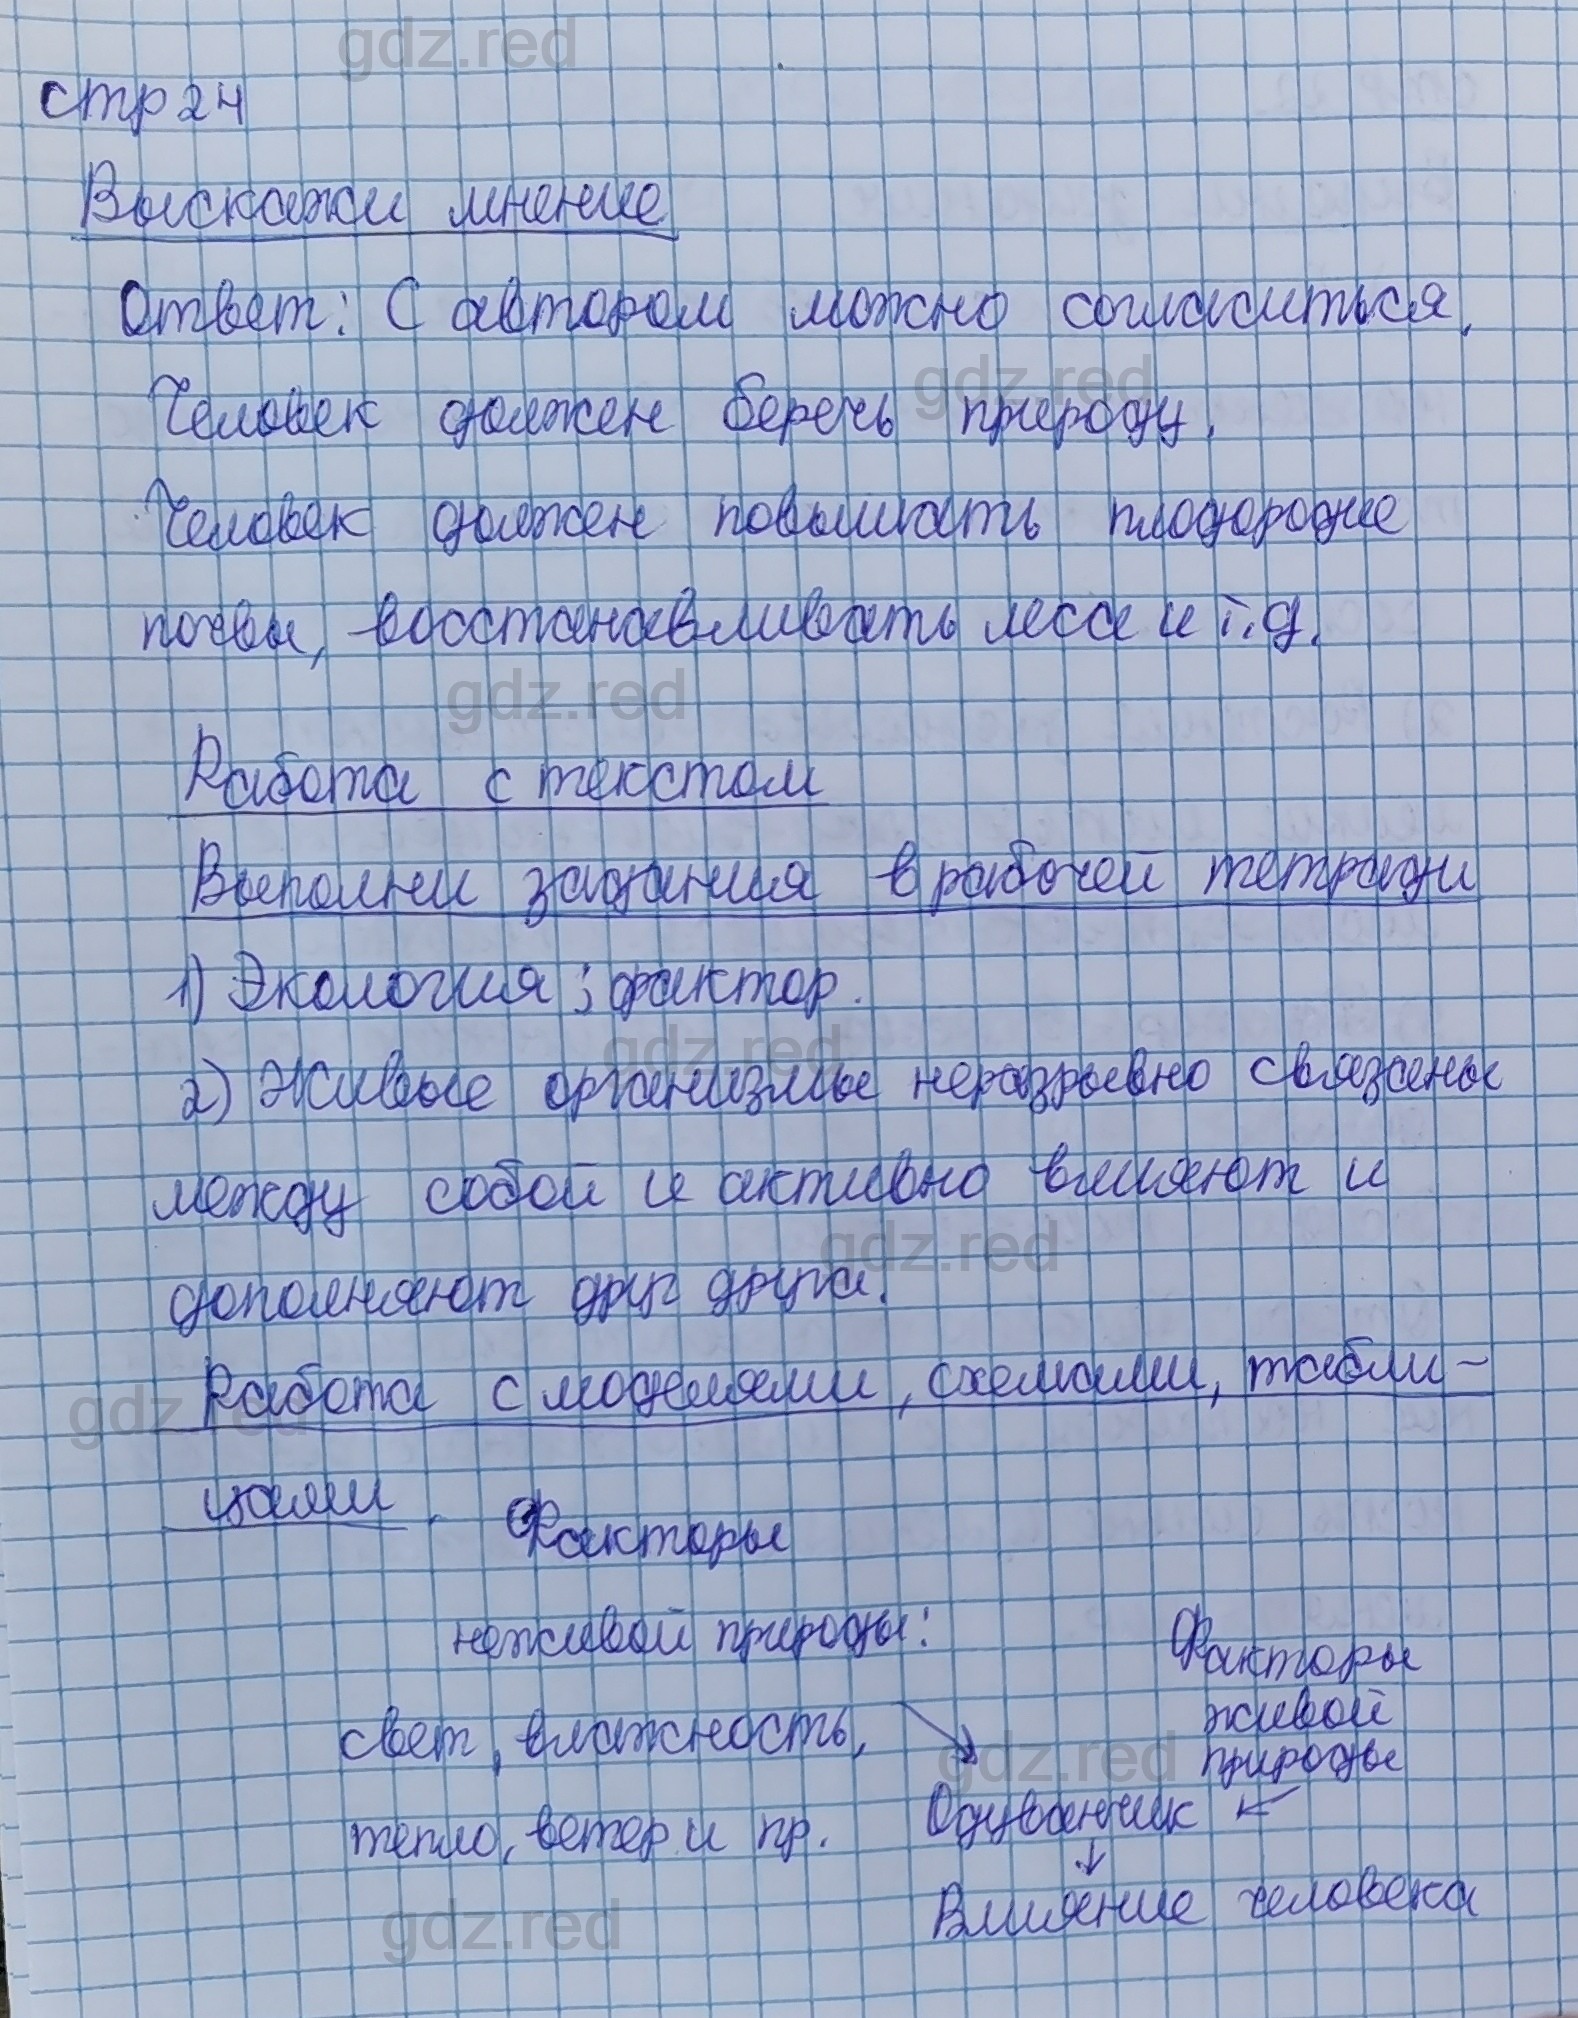 gdz.red
стр 24
Выскажи мнение
Ответ: С автором можно согласиться.
gdz.red
Человек должен беречь природу.
Человек должен повышать плодородие
почвы, восстанавливать леса и т.д.
gdz.red
Работа с текстом
Выполни задания в рабочей тетради
1) Экология; фактор.
gdz.red
2) Живые организмы неразрывно связаны
между собой и активно влияют и
gdz.red
дополняют друг друга.
Работа с моделями, схемами, табли-
gdz.red
цами.
Факторы
неживой природы:
свет, влажность,
тепло, ветер и пр.
Факторы
живой
природы
gdz.red
Одуванчик
Влияние человека
gdz.red